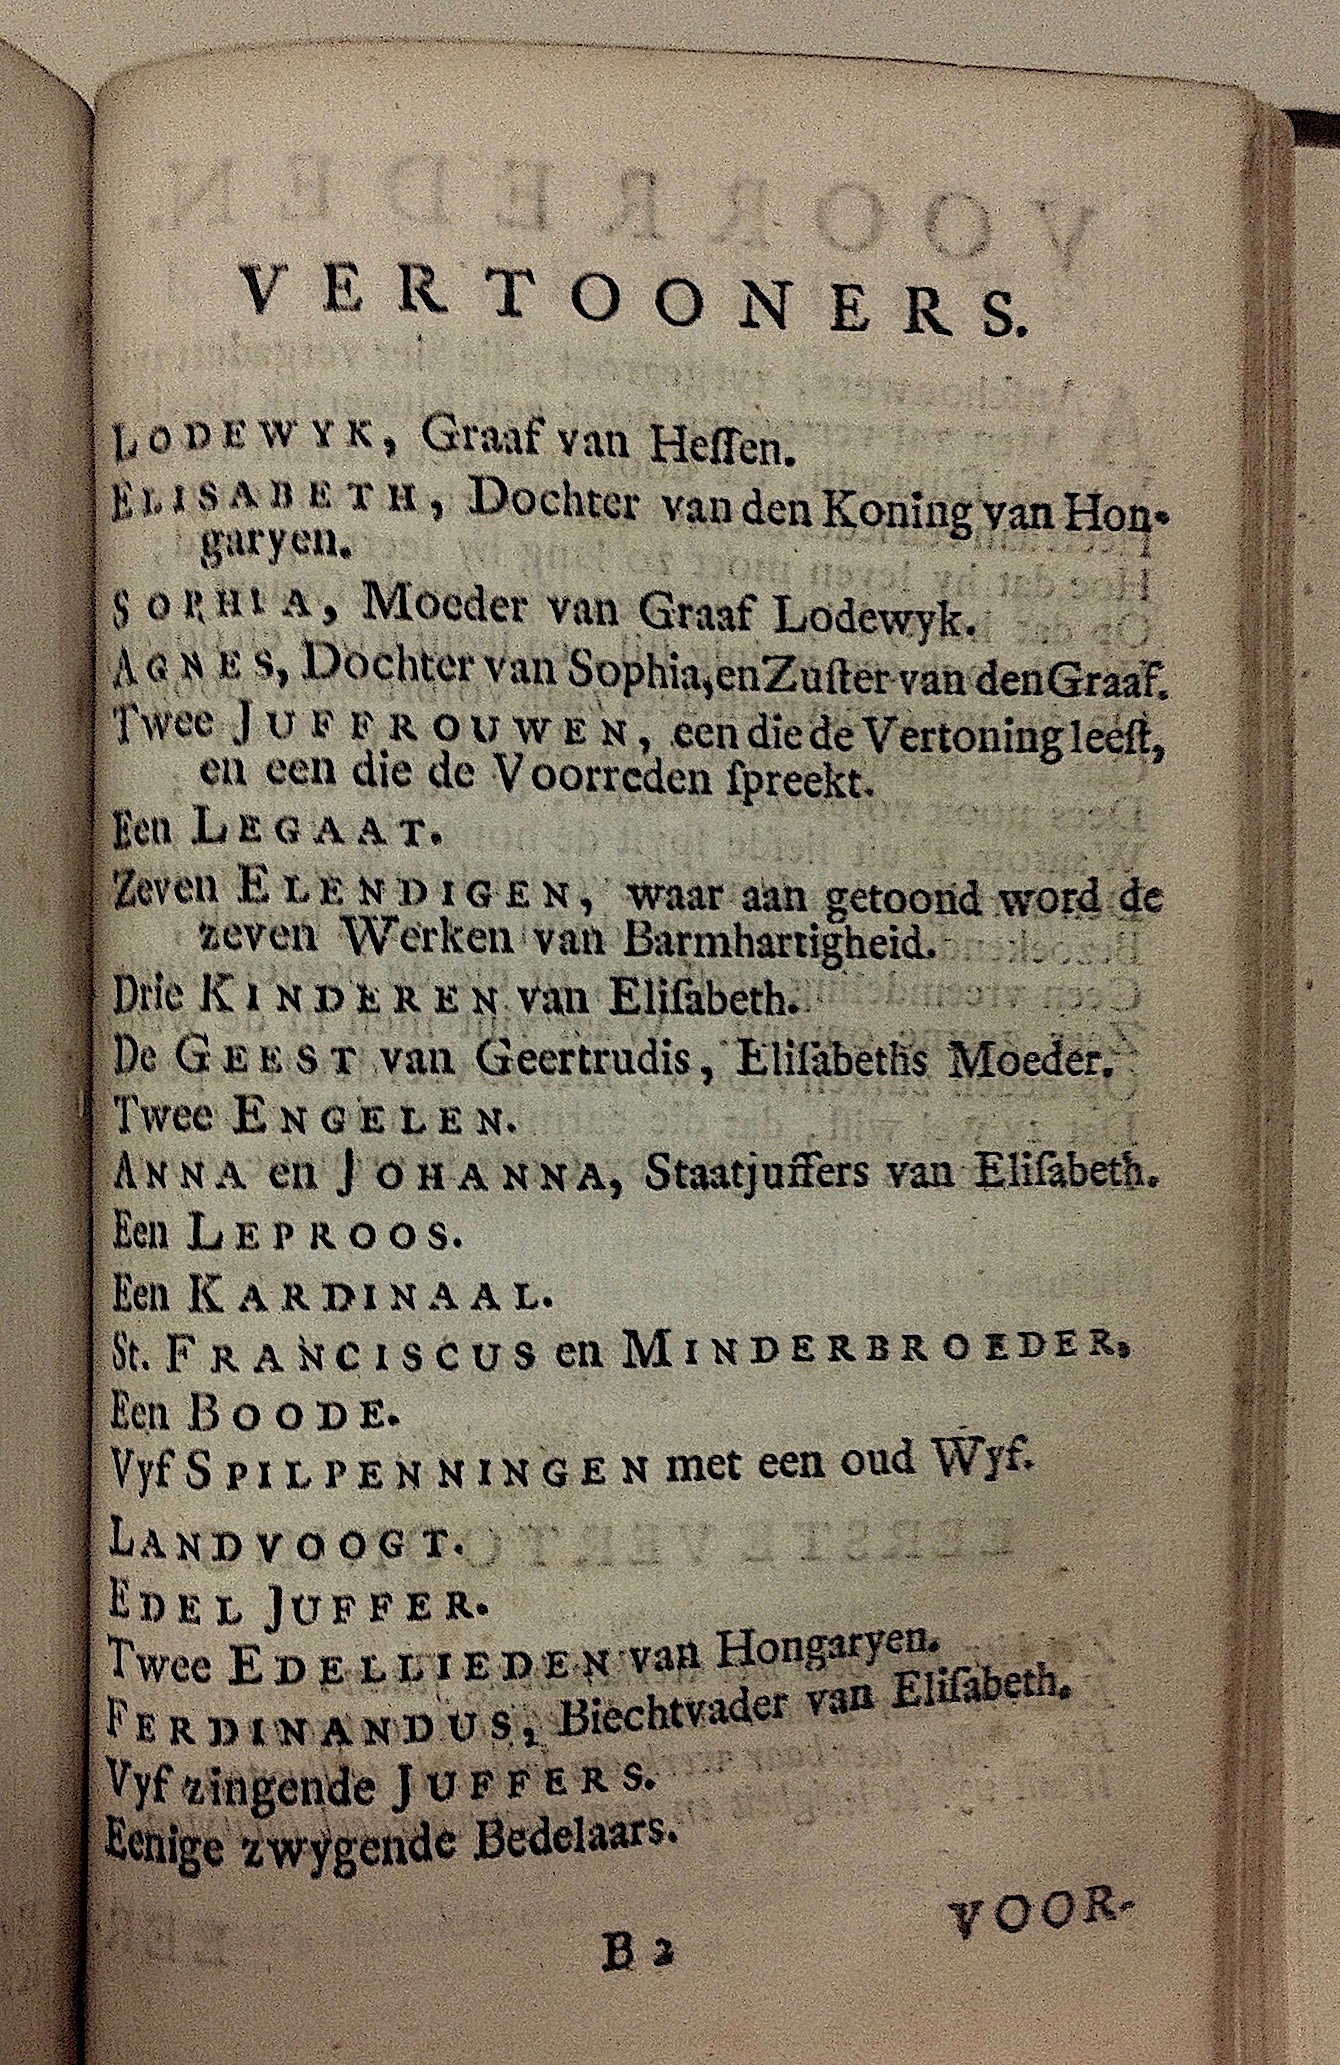 VERTOONERS.
LODEWYK, Graaf van Heſſen.
ELISABETH, Dochter van den Koning van Hon-
garyen.
SOPHIA, Moeder van Graaf Lodewyk.
AGNES, Dochter van Sophia, en Zuſter van den Graaf.
Twee JUFFROUWEN, een die de Vertoning leeſt,
en een die de Voorreden ſpreekt.
Een LEGAAT.
Zeven ELENDIGEN, waar aan getoond word de
zeven Werken van Barmhartigheid.
Drie KINDEREN van Eliſabeth.
De GEEST van Geertrudis, Eliſabeths Moeder.
Twee ENGELEN.
ANNA en JOHANNA, Staatjuffers van Eliſabeth.
Een LEPROOS.
Een KARDINAAL.
St. FRANCISCUS en MINDERBROEDER,
Een BOODE.
Vyf SPILPENNINGEN met een oud Wyf.
LANDVOOGT.
EDEL JUFFER.
Twee EDELLIEDEN van Hongaryen.
FERDINANDUS, Biechtvader van Eliſabeth.
Vyf zingende JUFFERS.
Eenige zwygende Bedelaars.
B 2
VOOR-